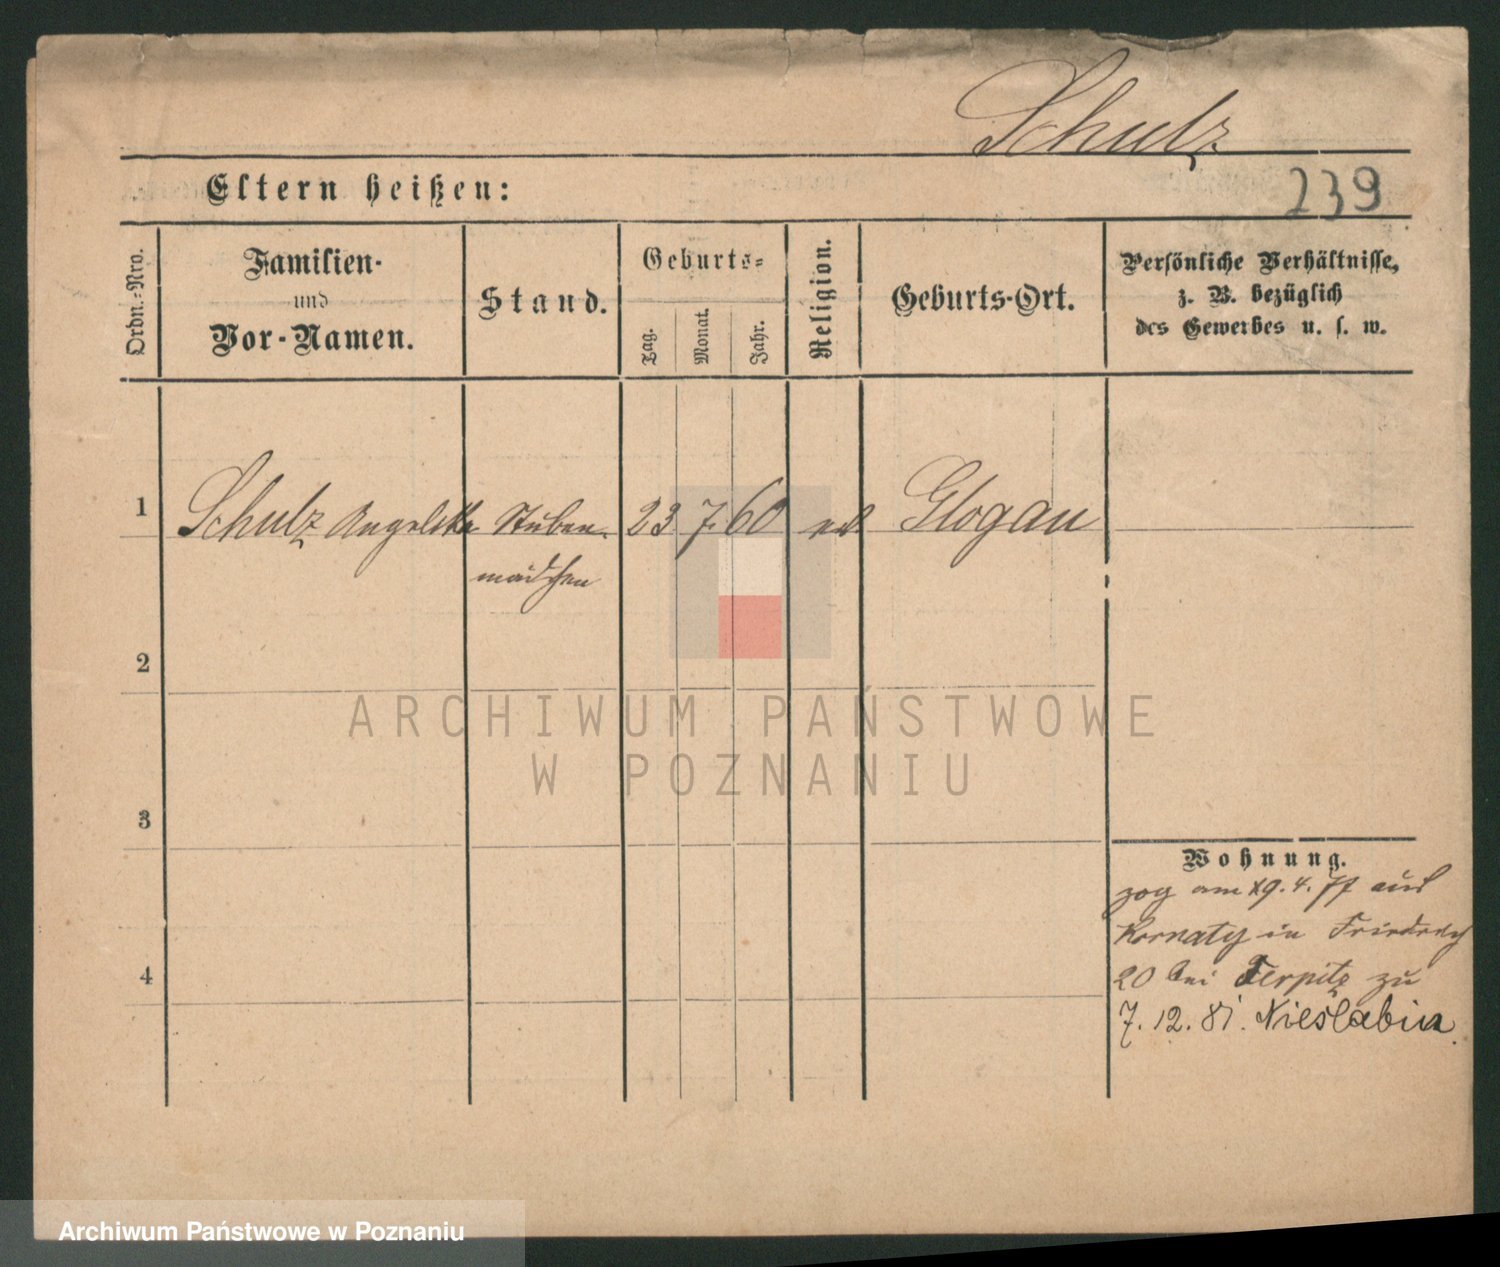 Schulz
Eltern heißen:
239
Ordn.-Nro.
Familien-
und
Vor-Namen.
Stand.
Geburts-
Tag.
Monat.
Jahr.
Religion.
Geburts-Ort.
Persönliche Verhältnisse,
z. B. bezüglich
des Gewerbes u. s. w.
1
Schulz Angelika Stuben- 23 7. 60 Glogau
mädchen
2
ARCHIWUM PAŃSTWOWE
W POZNANIU
3
Wohnung.
zog am 19. 4. 77 aus
in Friedrich
20 bei Terpitz zu
4
7. 12. 81.
Archiwum Państwowe w Poznaniu